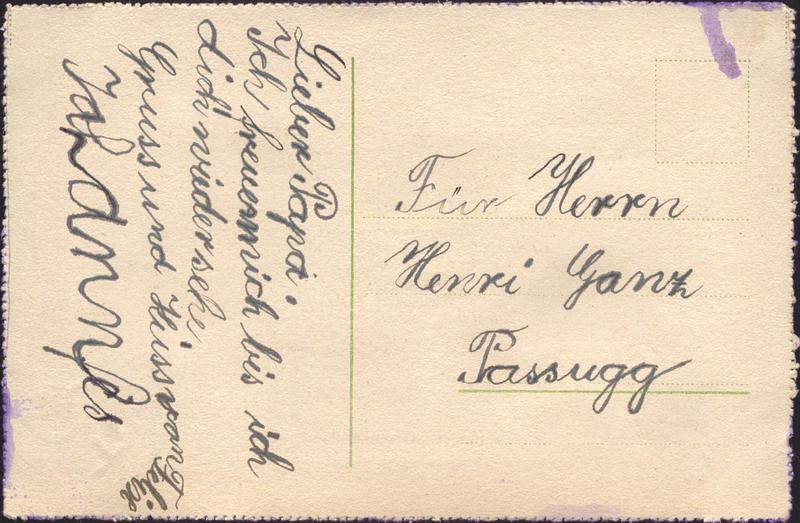 Lieber Papa.
Ich freue mich bis ich
dich wiedersehe
Gruss und Kuss von
Johannes
Für Herrn
Henri Ganz
Passugg